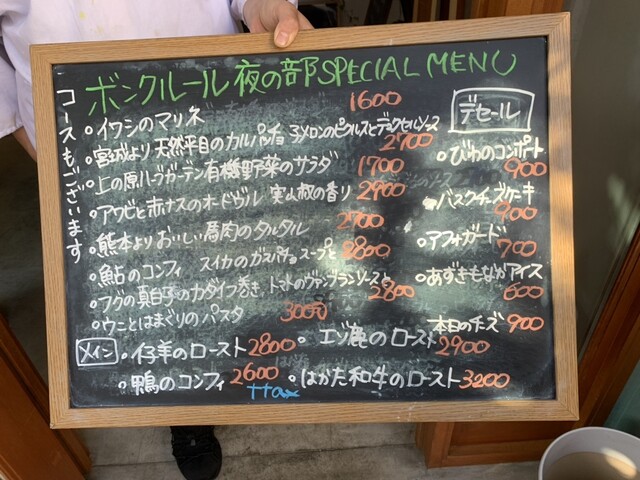 ボンクルール 夜の部 SPECIAL MENU
コースもございます
・イワシのマリネ 1600
・宮城より 天然平目のカルパッチョ 子メロンのピクルスとデュクセルソース 2700
・上の原ハーブガーデン有機野菜のサラダ 1700
・アワビと赤ナスのオードヴル 実山椒の香り 2900
・熊本より おいしい馬肉のタルタル 2700
・鮎のコンフィ スイカのガスパチョスープと 2800
・フグの真白子のカダイフ巻き、トマトのヴァンブランソースと 2800
・ウニとはまぐりのパスタ 3000
メイン
・仔羊のロースト 2800
・エゾ鹿のロースト 2900
・鴨のコンフィ 2600
・はかた和牛のロースト 3200
+tax
デセール
・びわのコンポート 900
・バスクチーズケーキ 900
・アフォガード 700
・あずきもなかアイス 600
本日のチーズ 900